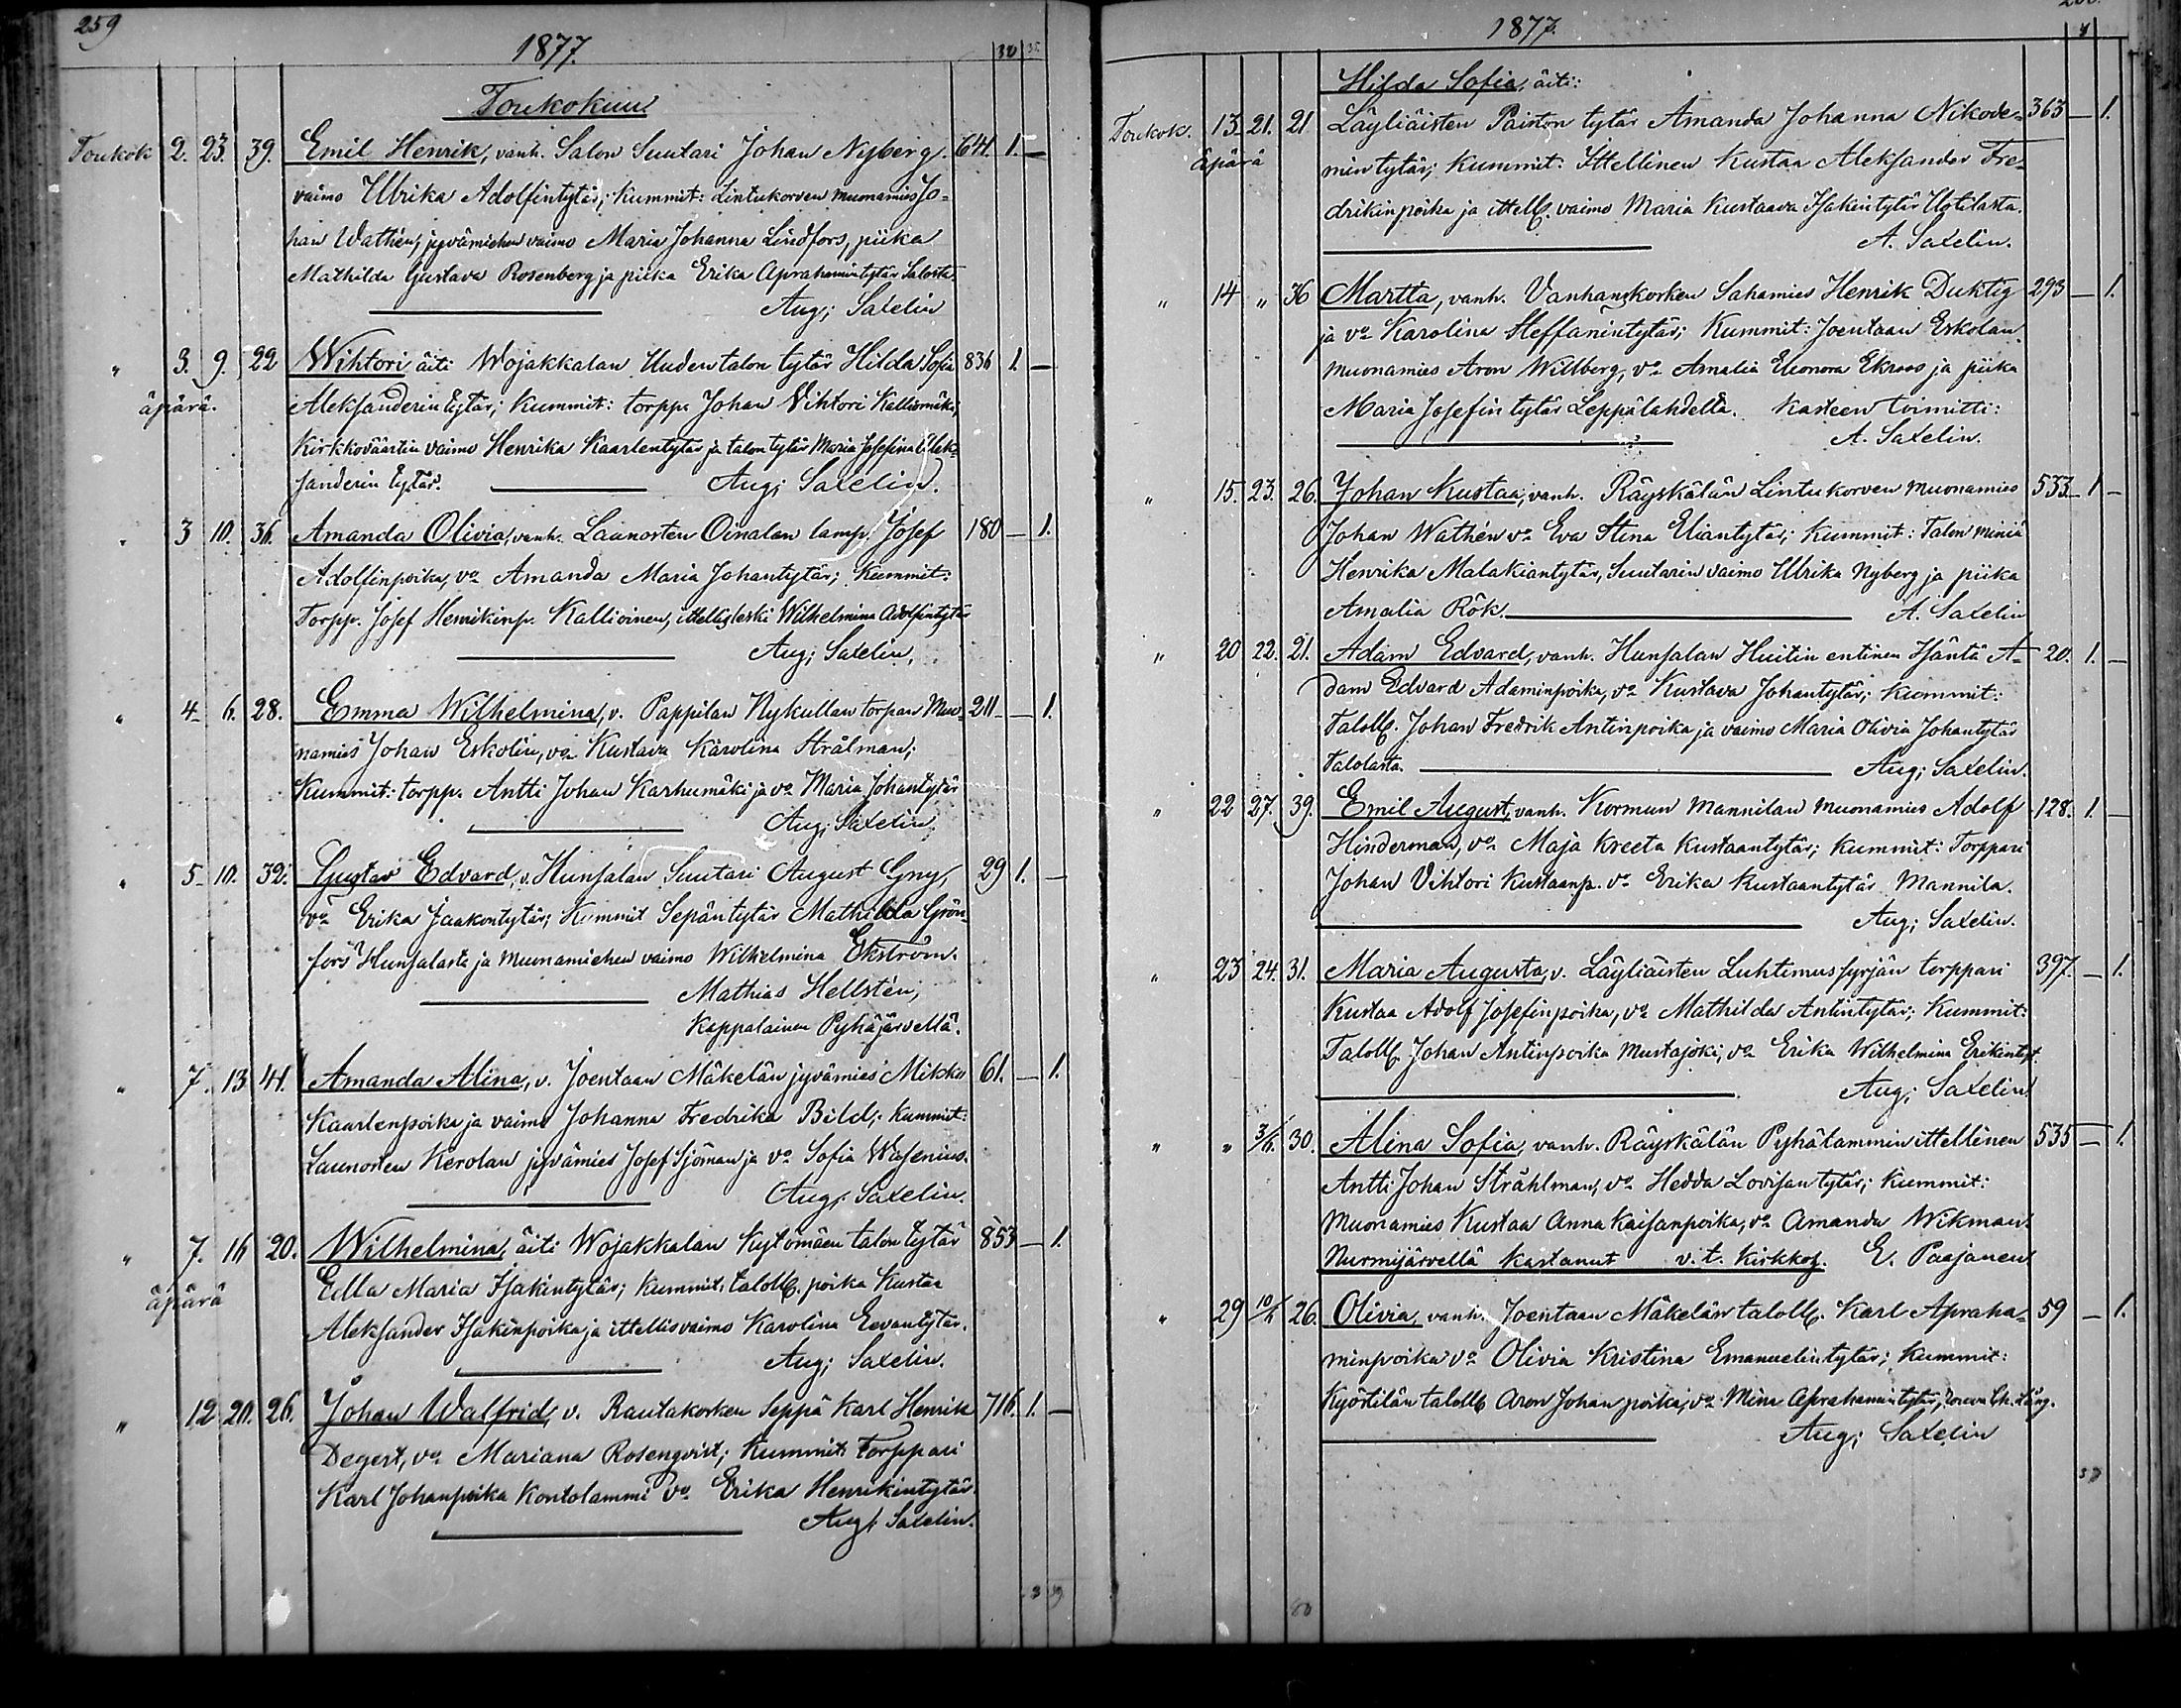 259
1877.
30
Toukokuu
Toukok 2. 23. 39. Emil Henrik, vanh. Salon Suutari Johan Nyberg. 641. 1. —
vaimo Ulrika Adolfintytär; Kummit: Lintukorven muonamies Jo-
han Wathén, jyvämiehen vaimo Maria Johanna Lindfors, piika
Mathilda Gustava Rosenberg ja piika Erika Aprahamintytär Salosta.
Aug; Saxelin
" 3. 9. 22 Wihtori äiti Wojakkalan Uudentalon tytär Hilda Sofia 836 1. —
äpärä. Aleksanderintytär; Kummit: torpp. Johan Vihtori Kalliomäki,
Kirkkoväärtin vaimo Henrika Kaarlentytär ja talon tytär Maria Josefina Alek-
sanderin tytär. Aug; Saxelin.
" 3 10. 36. Amanda Olivia, vanh. Launosten Oinalan lamp. Josef 180 — 1.
Adolfinpoika, vo Amanda Maria Johantytär; Kummit:
Torpp. Josef Henrikinp. Kallioinen, ittellisleski Wilhelmina Adolfintytär
Aug; Saxelin,
" 4. 6. 28. Emma Wilhelmina, v. Pappilan Nykullan torpan Muo- 211 — 1.
namies Johan Eskolin, vo Kustava Karolina Strålman;
Kummit: torpp. Antti Johan Karhumäki ja vo Maria Johantytär
Aug; Saxelin,
" 5. 10. 32. Gustav Edvard, v. Hunsalan Suutari August Gny, 29 1. —
vo Erika Jaakontytär; Kummit Sepäntytär Mathilda Grön-
fors Hunsalasta ja muonamiehen vaimo Wilhelmina Ekström.
Mathias Hellstén;
Kappalainen Pyhäjärvellä.
" 7. 13 41. Amanda Alina, v. Joentaan Mäkelän jyvämies Mikko 61. — 1.
Kaarlenpoika ja vaimo Johanna Fredrika Bild; Kummit:
Launosten Kerolan jyvämies Josef Sjöman ja vo Sofia Wasenius.
Aug; Saxelin.
" 7. 16 20. Wilhelmina, äiti Wojakkalan Kytömäen talon tytär 853 — 1.
äpärä Ella Maria Isakintytär; Kummit. taloll. poika Kustaa
Aleksander Isakinpoika ja ittellisvaimo Karolina Eevantytär.
Aug; Saxelin.
" 12 20. 26. Johan Walfrid, v. Rautakosken Seppä Karl Henrik 716. 1. —
Degert, vo Mariana Rosenqvist; Kummit: Torppari
Karl Johanpoika Kontolammi vo Erika Henrikintytär.
Aug; Saxelin.
1877.
Hilda Sofia, äiti:
Toukok. 13. 21. 21 Läyliäisten Paiston tytär Amanda Johanna Nikode- 363 — 1.
äpärä mintytär; Kummit: Ittellinen Kustaa Aleksander Fre-
drikinpoika ja ittell. vaimo Maria Kustaava Isakintytär Uotilasta.
A. Saxelin.
" 14 " 36 Martta, vanh. Vanhankosken Sahamies Henrik Duktig 293 — 1.
ja vo Karolina Steffanintytär; Kummit: Joentaan Eskolan
muonamies Aron Willberg, vo Amalia Eleonora Ekroos ja piika
Maria Josefintytär Leppälahdelta. Kasteen toimitti:
A. Saxelin.
" 15. 23. 26. Johan Kustaa, vanh. Räyskälän Lintukorven muonamies 533 1 —
Johan Wathén vo Eva Stina Eliantytär; Kummit: Talon miniä
Henrika Malakiantytär, Suutarin vaimo Ulrika Nyberg ja piika
Amalia Rök. A. Saxelin
" 20 22. 21. Adam Edvard, vanh. Hunsalan Huitin entinen Isäntä A- 20. 1. —
dam Edvard Adaminpoika, vo Kustava Johantytär; Kummit:
Taloll. Johan Fredrik Antinpoika ja vaimo Maria Olivia Johantytär
Talolasta. Aug; Saxelin.
" 22 27. 39. Emil August, vanh. Kormun Mannilan muonamies Adolf 128. 1. —
Hinderman, vo Maja Kreeta Kustaantytär; Kummit: Torppari
Johan Vihtori Kustaanp. vo Erika Kustaantytär Mannila.
Aug; Saxelin.
" 23 24. 31. Maria Augusta, v. Läyliäisten Luhtimussyrjän torppari 397. — 1.
Kustaa Adolf Josefinpoika, vo Mathilda Antintytär; Kummit:
Taloll. Johan Antinpoika Mustajoki, vo Erika Wilhelmina Erikintyt.
Aug; Saxelin
" " 3/6. 30. Alina Sofia, vanh. Räyskälän Pyhälammin ittellinen 535 — 1.
Antti Johan Stråhlman, vo Hedda Lovisantytär; Kummit:
Muonamies Kustaa Anna Kaisanpoika, vo Amanda Wikman.
Nurmijärvellä kastanut v. t. Kirkkoh. E. Paajanen
" 29 10/6 26. Olivia, vanh. Joentaan Mäkelän taloll. Karl Apraha- 59 — 1.
minpoika vo Olivia Kristina Emanuelintytär; Kummit:
Kyöstilän taloll. Aron Johan poika, vo Mina Aprahamintytär,
Aug; Saxelin